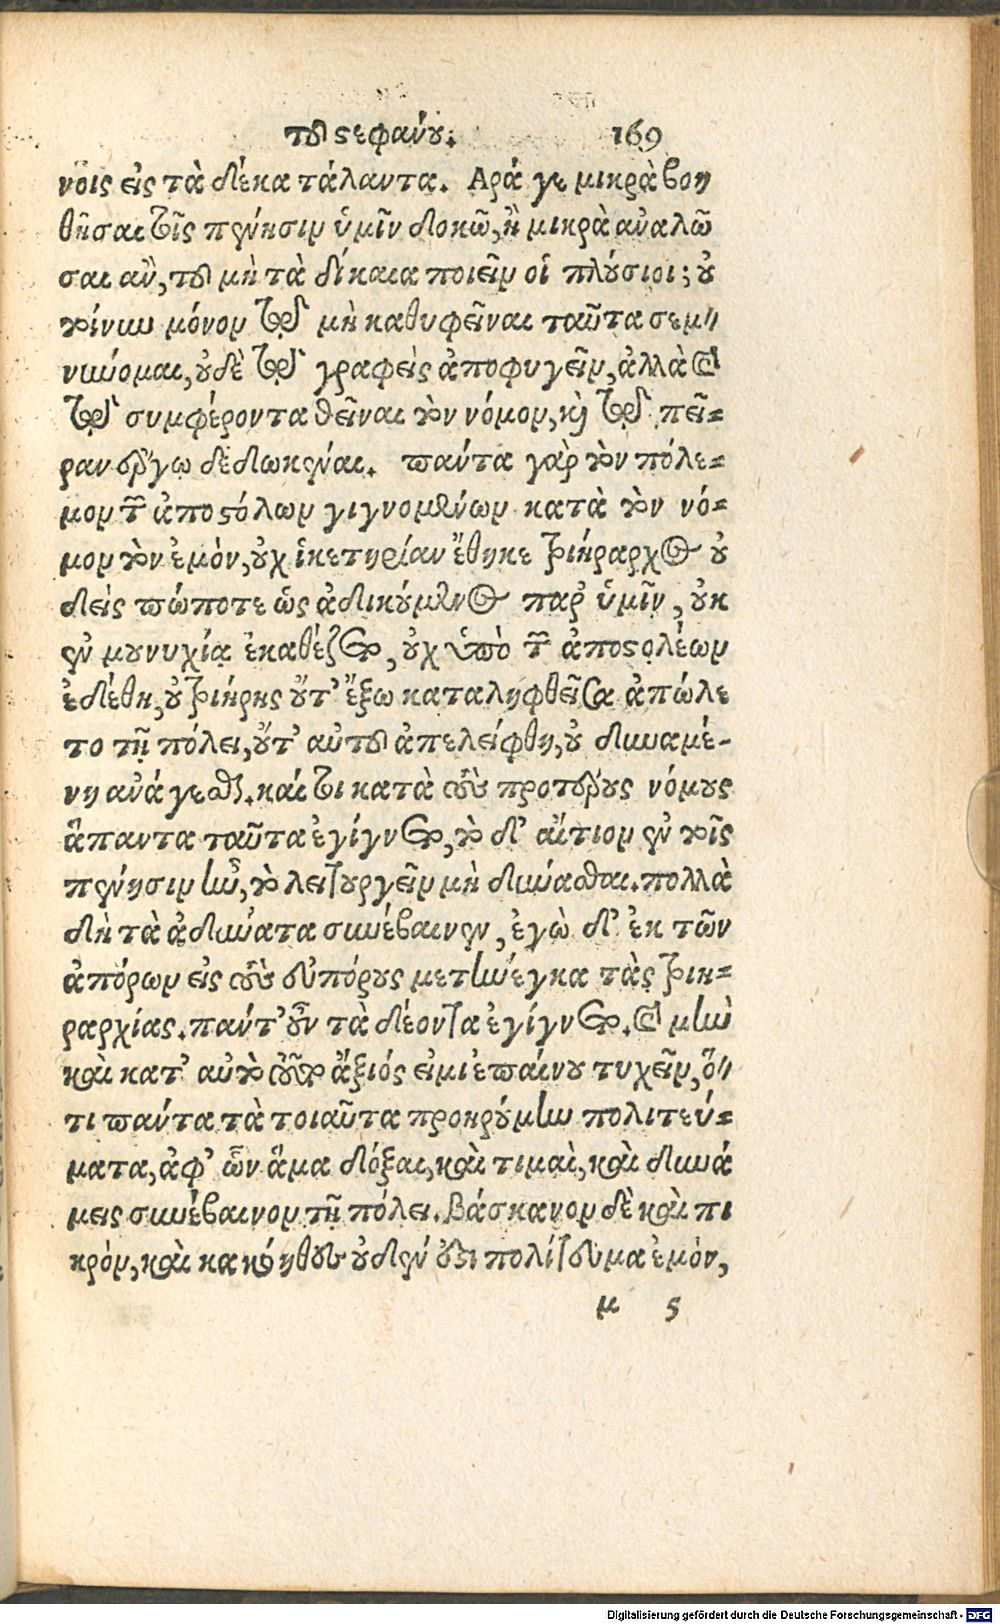 τοῦ στεφάνου. 169
νοις εἰς τὰ δέκα τάλαντα. Ἆρά γε μικρὰ βοη
θῆσαι τοῖς πένησιν ὑμῖν δοκῶ, ἢ μικρὰ ἀναλῶ
σαι ἂν, τοῦ μὴ τὰ δίκαια ποιεῖν οἱ πλούσιοι; οὐ
τοίνυν μόνον τῷ μὴ καθυφεῖναι ταῦτα σεμ-
νύνομαι, οὐδὲ τῷ γραφεὶς ἀποφυγεῖν, ἀλλὰ καὶ
τῷ συμφέροντα θεῖναι τὸν νόμον, καὶ τῷ πεῖ-
ραν ἔργῳ δεδωκέναι. πάντα γὰρ τὸν πόλε-
μον τῶν ἀποστόλων γιγνομένων κατὰ τὸν νό-
μον τὸν ἐμὸν, οὐχ ἱκετηρίαν ἔθηκε τριήραρχος οὐ
δεὶς πώποτε ὡς ἀδικούμενος παρ' ὑμῖν, οὐκ
ἐν μουνυχίᾳ ἐκαθέζετο, οὐχ ὑπὸ τῶν ἀποστολέων
ἐδέθη, οὐ τριήρης οὔτ' ἔξω καταληφθεῖσα ἀπώλε
το τῇ πόλει, οὔτ' αὐτοῦ ἀπελείφθη, οὐ δυναμέ-
νη ἀνάγεσθαι. καί τοι κατὰ τοὺς προτέρους νόμους
ἅπαντα ταῦτα ἐγίγνετο, τὸ δ' αἴτιον ἐν τοῖς
πένησιν ἦν, τὸ λειτουργεῖν μὴ δύνασθαι. πολλὰ
δὴ τὰ ἀδύνατα συνέβαινεν, ἐγὼ δ' ἐκ τῶν
ἀπόρων εἰς τοὺς εὐπόρους μετήνεγκα τὰς τριη-
ραρχίας. πάντ' οὖν τὰ δέοντα ἐγίγνετο. καὶ μὴν
καὶ κατ' αὐτὸ τοῦτο ἄξιός εἰμι ἐπαίνου τυχεῖν, ὅ-
τι πάντα τὰ τοιαῦτα προηρούμην πολιτεύ-
ματα, ἀφ' ὧν ἅμα δόξαι, καὶ τιμαὶ, καὶ δυνά
μεις συνέβαινον τῇ πόλει. βάσκανον δὲ καὶ πι
κρὸν, καὶ κακόηθες οὐδέν ἐστι πολίτευμα ἐμὸν,
μ 5
Digitalisierung gefördert durch die Deutsche Forschungsgemeinschaft - DFG